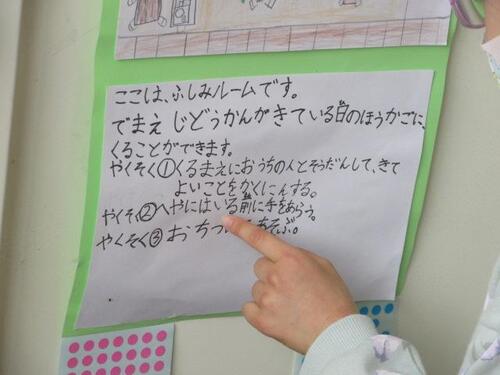 ここは、ふしみルームです。
でまえ じどうかんがきている日のほうかごに、
くることができます。
やくそく①くるまえにおうちの人とそうだんして、きて
よいことをかくにんする。
やくそく②へやにはいる前に手をあらう。
やくそく③おちつ あそぶ。